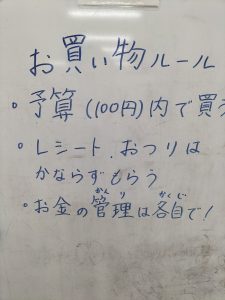 お買い物ルール
・予算(100円)内で買う
・レシート、おつりは
かならずもらう
・お金の管理は各自で!
かんり かくじ